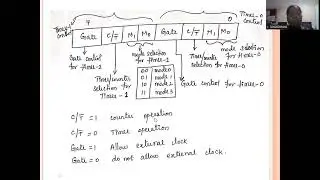 Timer-1 control
7
0
Timer-0 control
Gate C/T̅ M₁ M₀ Gate C/T̅ M₁ M₀
Gate control for timer-1
Timer/counter selection for timer-1
mode selection for timer-1
Gate control for timer-0
Timer/counter selection for timer-0
mode selection for timer-0
00 mode 0
01 mode 1
10 mode 2
11 mode 3
C/T̅ = 1 counter operation
C/T̅ = 0 Timer operation
Gate = 1 Allow external clock
Gate = 0 do not allow external clock.